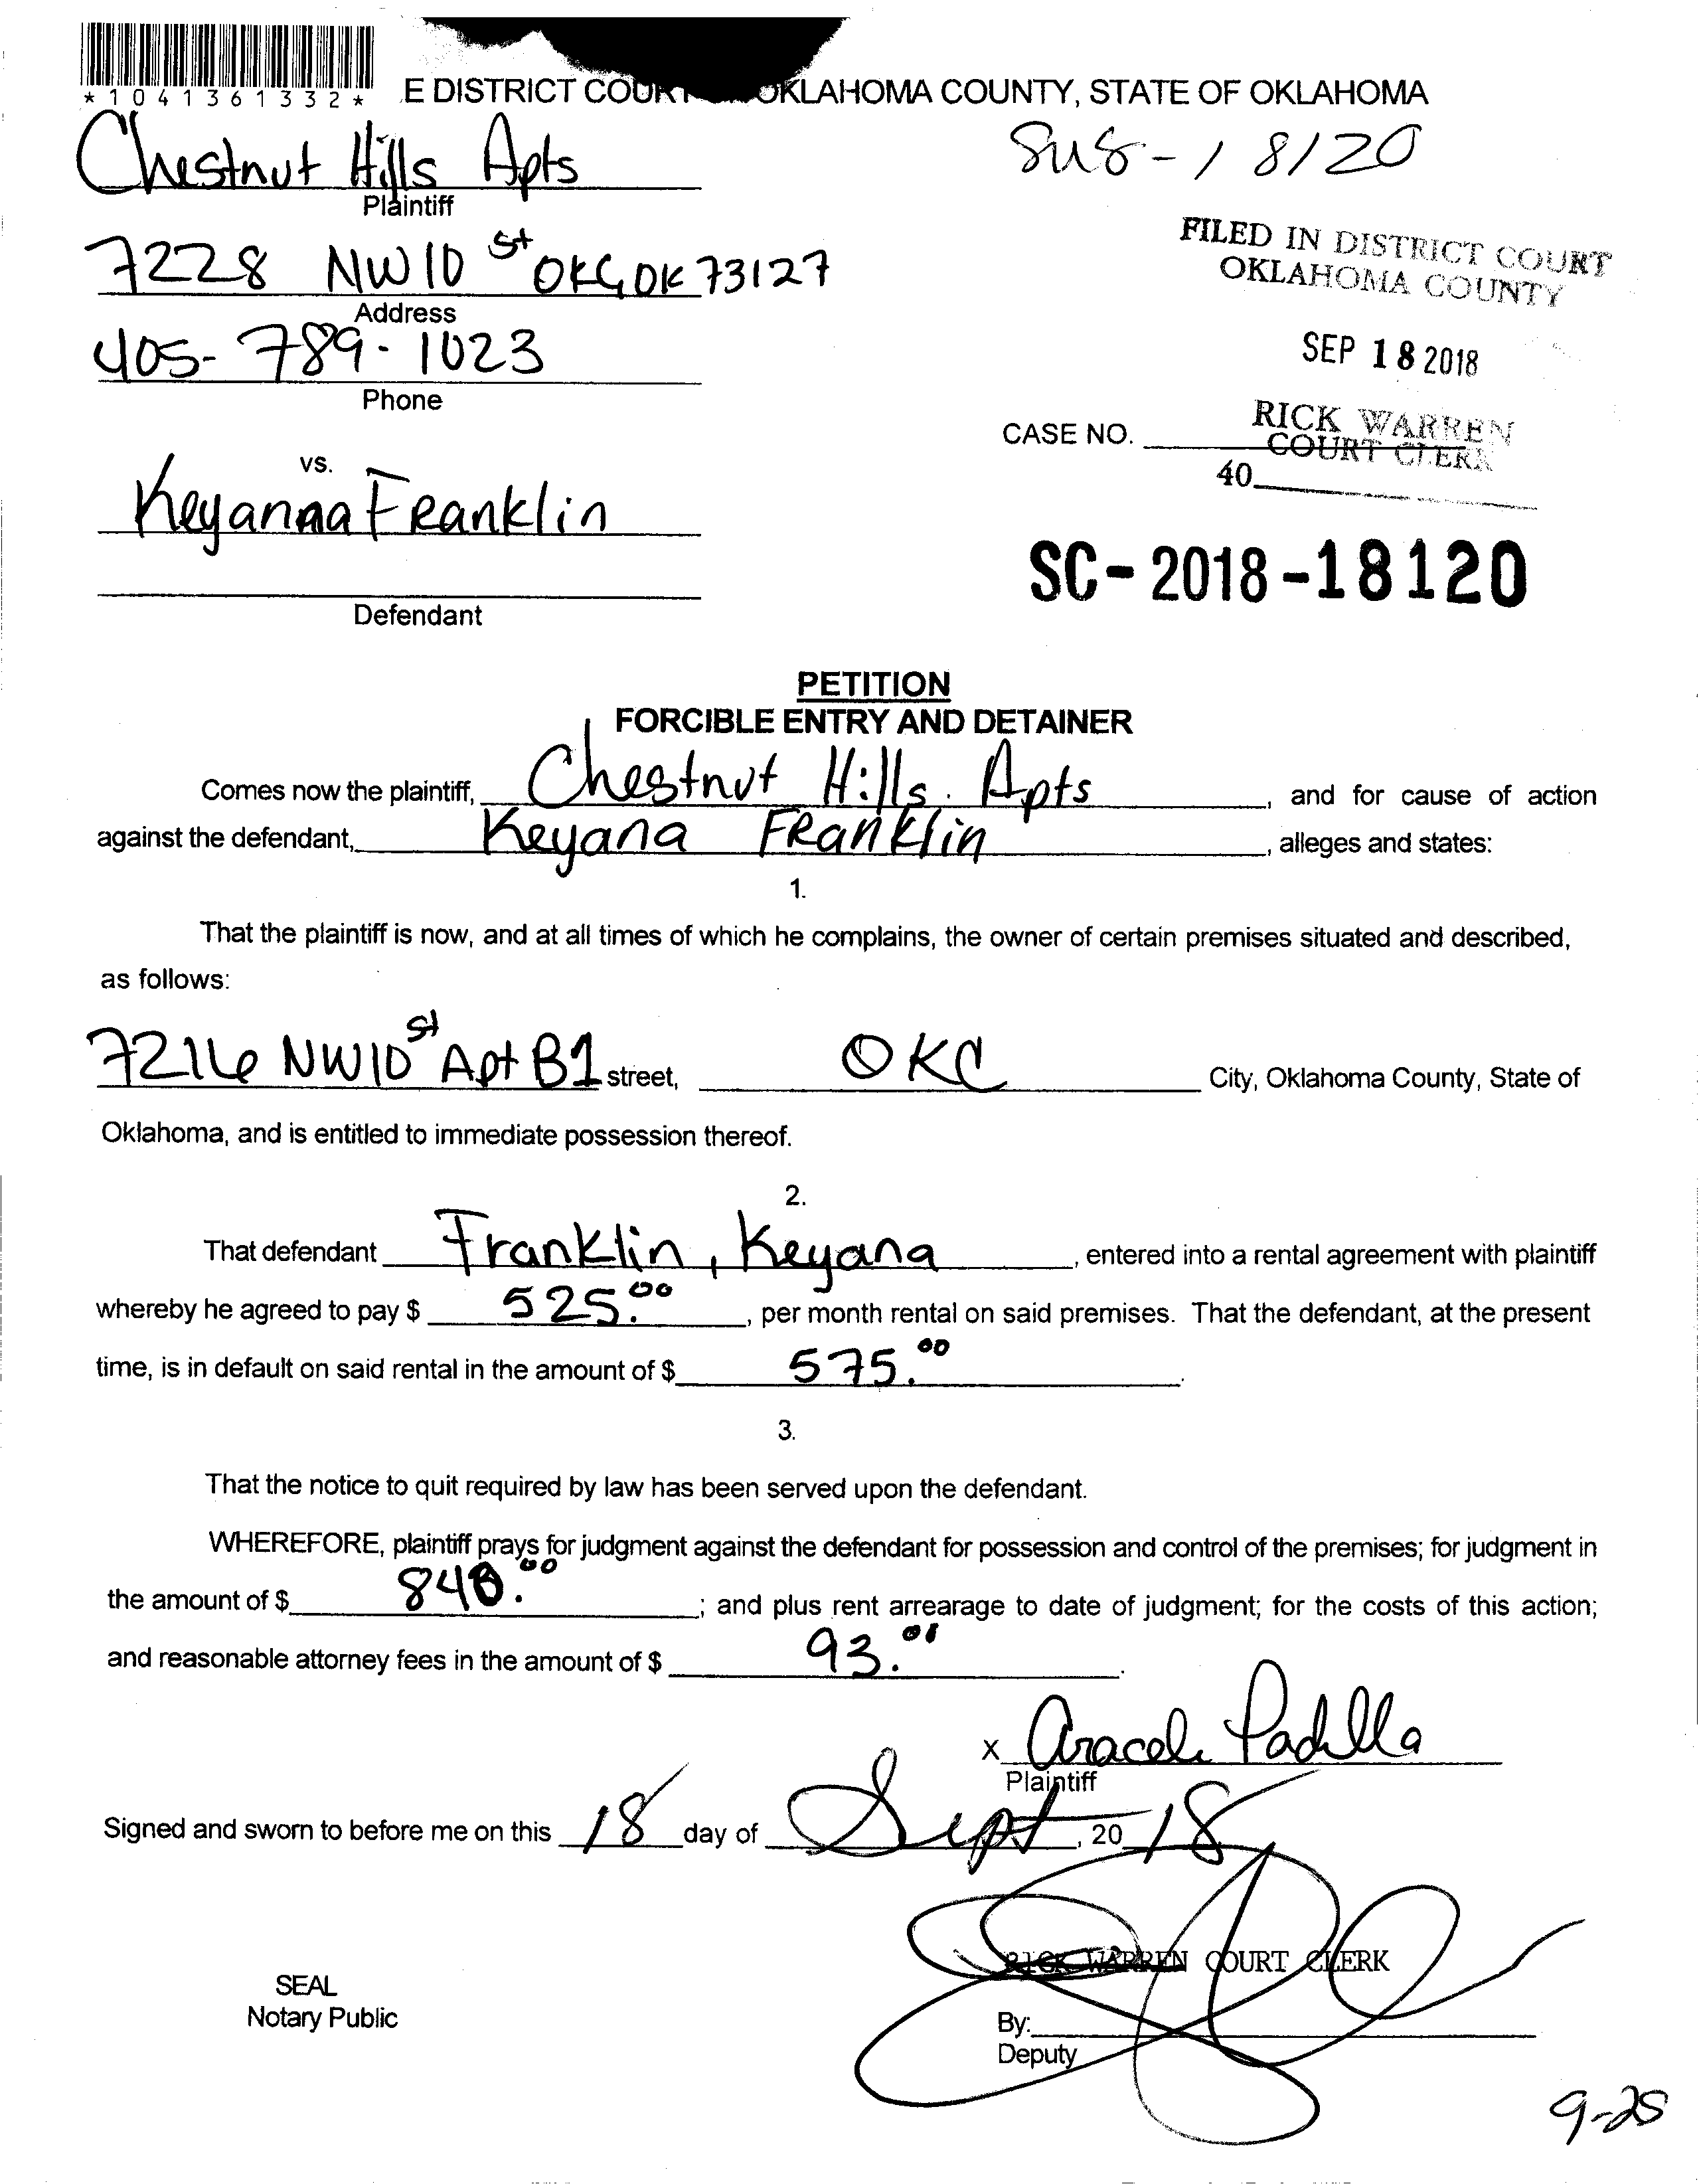 *1041361332*
E DISTRICT COURT OKLAHOMA COUNTY, STATE OF OKLAHOMA
Chestnut Hills Apts
Plaintiff
18120
7228 NW 10 St OKC, OK 73127
Address
FILED IN DISTRICT COURT
OKLAHOMA COUNTY
405-789-1023
Phone
SEP 18 2018
RICK WARREN
COURT CLERK
CASE NO.
40
vs.
Keyanna Franklin
Defendant
SC-2018-18120
PETITION
FORCIBLE ENTRY AND DETAINER
Comes now the plaintiff, Chestnut Hills Apts, and for cause of action
against the defendant, Keyana Franklin, alleges and states:
1.
That the plaintiff is now, and at all times of which he complains, the owner of certain premises situated and described,
as follows:
7216 NW 10 St Apt B1 street, OKC City, Oklahoma County, State of
Oklahoma, and is entitled to immediate possession thereof.
2.
That defendant Franklin, Keyana, entered into a rental agreement with plaintiff
whereby he agreed to pay $ 525.00, per month rental on said premises. That the defendant, at the present
time, is in default on said rental in the amount of $ 575.00.
3.
That the notice to quit required by law has been served upon the defendant.
WHEREFORE, plaintiff prays for judgment against the defendant for possession and control of the premises; for judgment in
the amount of $ 840.00; and plus rent arrearage to date of judgment; for the costs of this action;
and reasonable attorney fees in the amount of $ 93.
x Araceli Padilla
Plaintiff
Signed and sworn to before me on this 18 day of Sept, 20 18
RICK WARREN COURT CLERK
SEAL
Notary Public
By:
Deputy
9-28